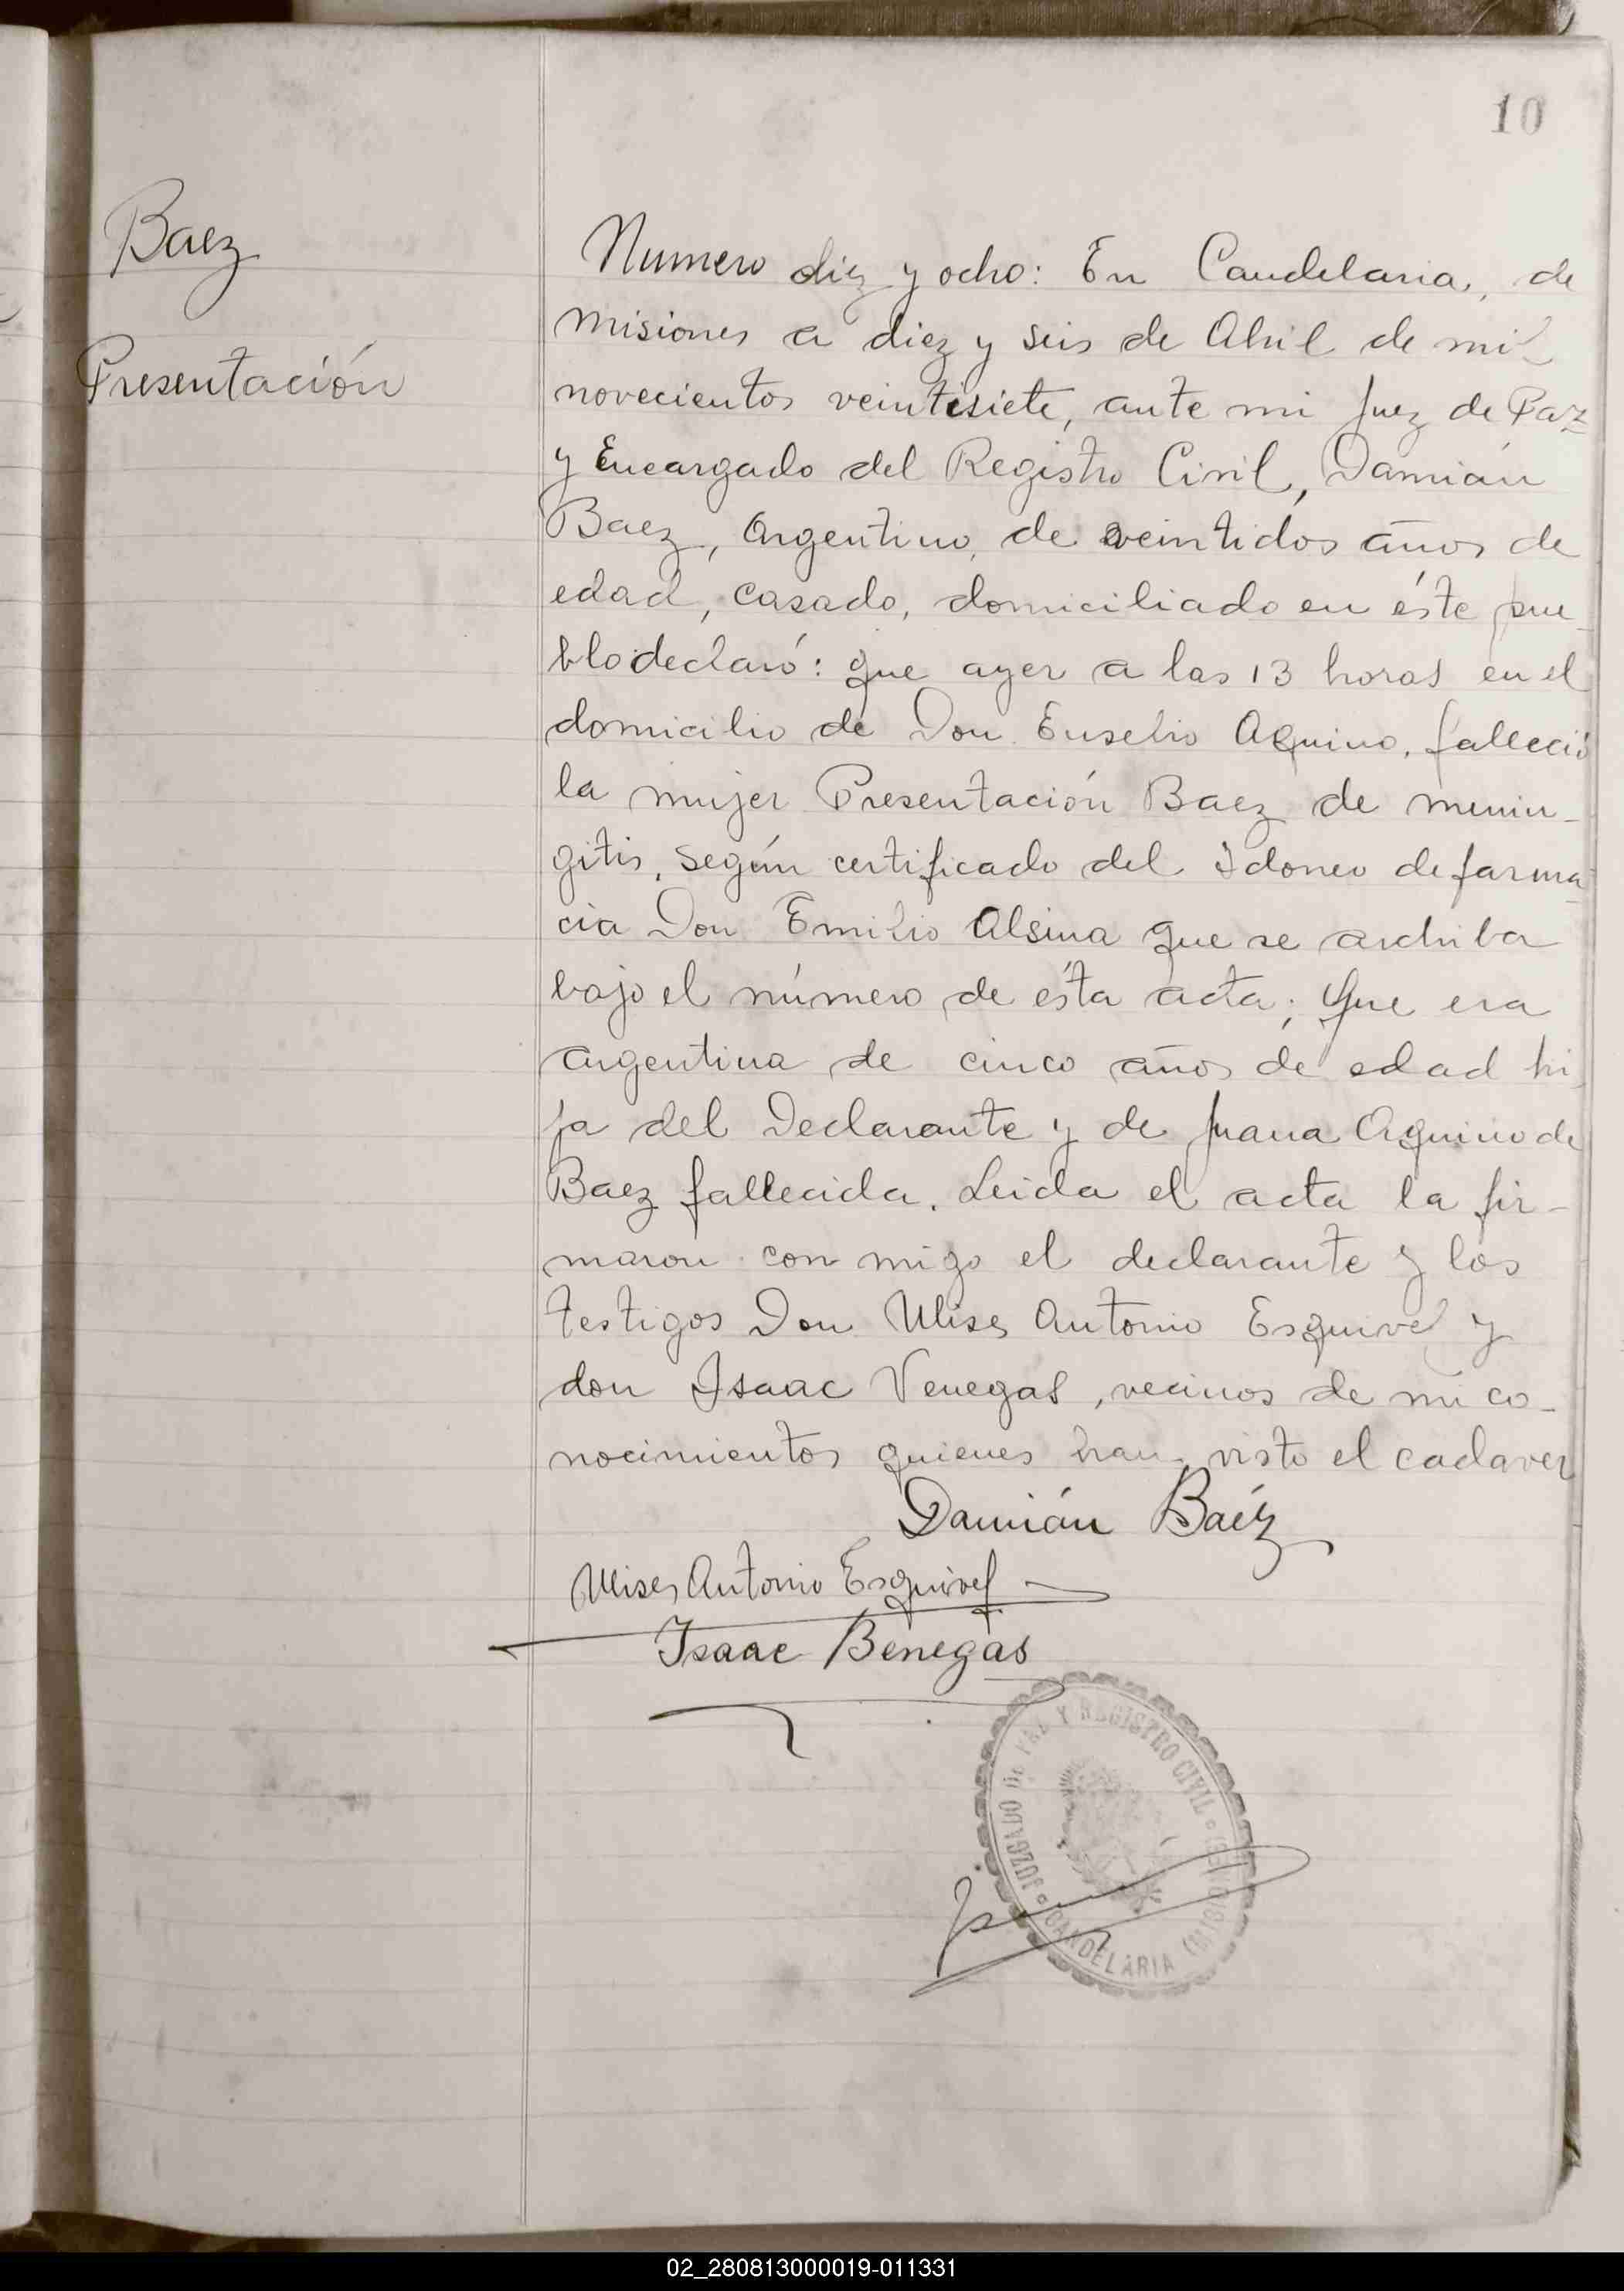 10
Baez
Presentación
Numero diez y ocho: En Candelaria, de
misiones a diez y seis de Abril de mil
novecientos veintisiete, ante mi Juez de Paz
y Encargado del Registro Civil, Damián
Baez, Argentino, de veintidos años de
edad, casado, domiciliado en éste pue
blo declaró: que ayer a las 13 horas en el
domicilio de Don Eusebio Aquino, falleció
la mujer Presentación Baez de menin-
gitis, según certificado del Idoneo de farma
cia Don Emilio Alsina que se archiba
bajo el número de ésta acta; Que era
argentina de cinco años de edad hi
ja del Declarante y de Juana Aquino de
Baez fallecida. Leida el acta la fir-
maron con migo el declarante y los
testigos Don Ulises Antonio Esquivel y
don Isaac Venegas, vecinos de mi co-
nocimientos quienes han visto el cadaver
Damián Baéz
Ulises Antonio Esquivel
Isaac Benegas
JUZGADO DE PAZ Y REGISTRO CIVIL
CANDELARIA
02_280813000019-011331